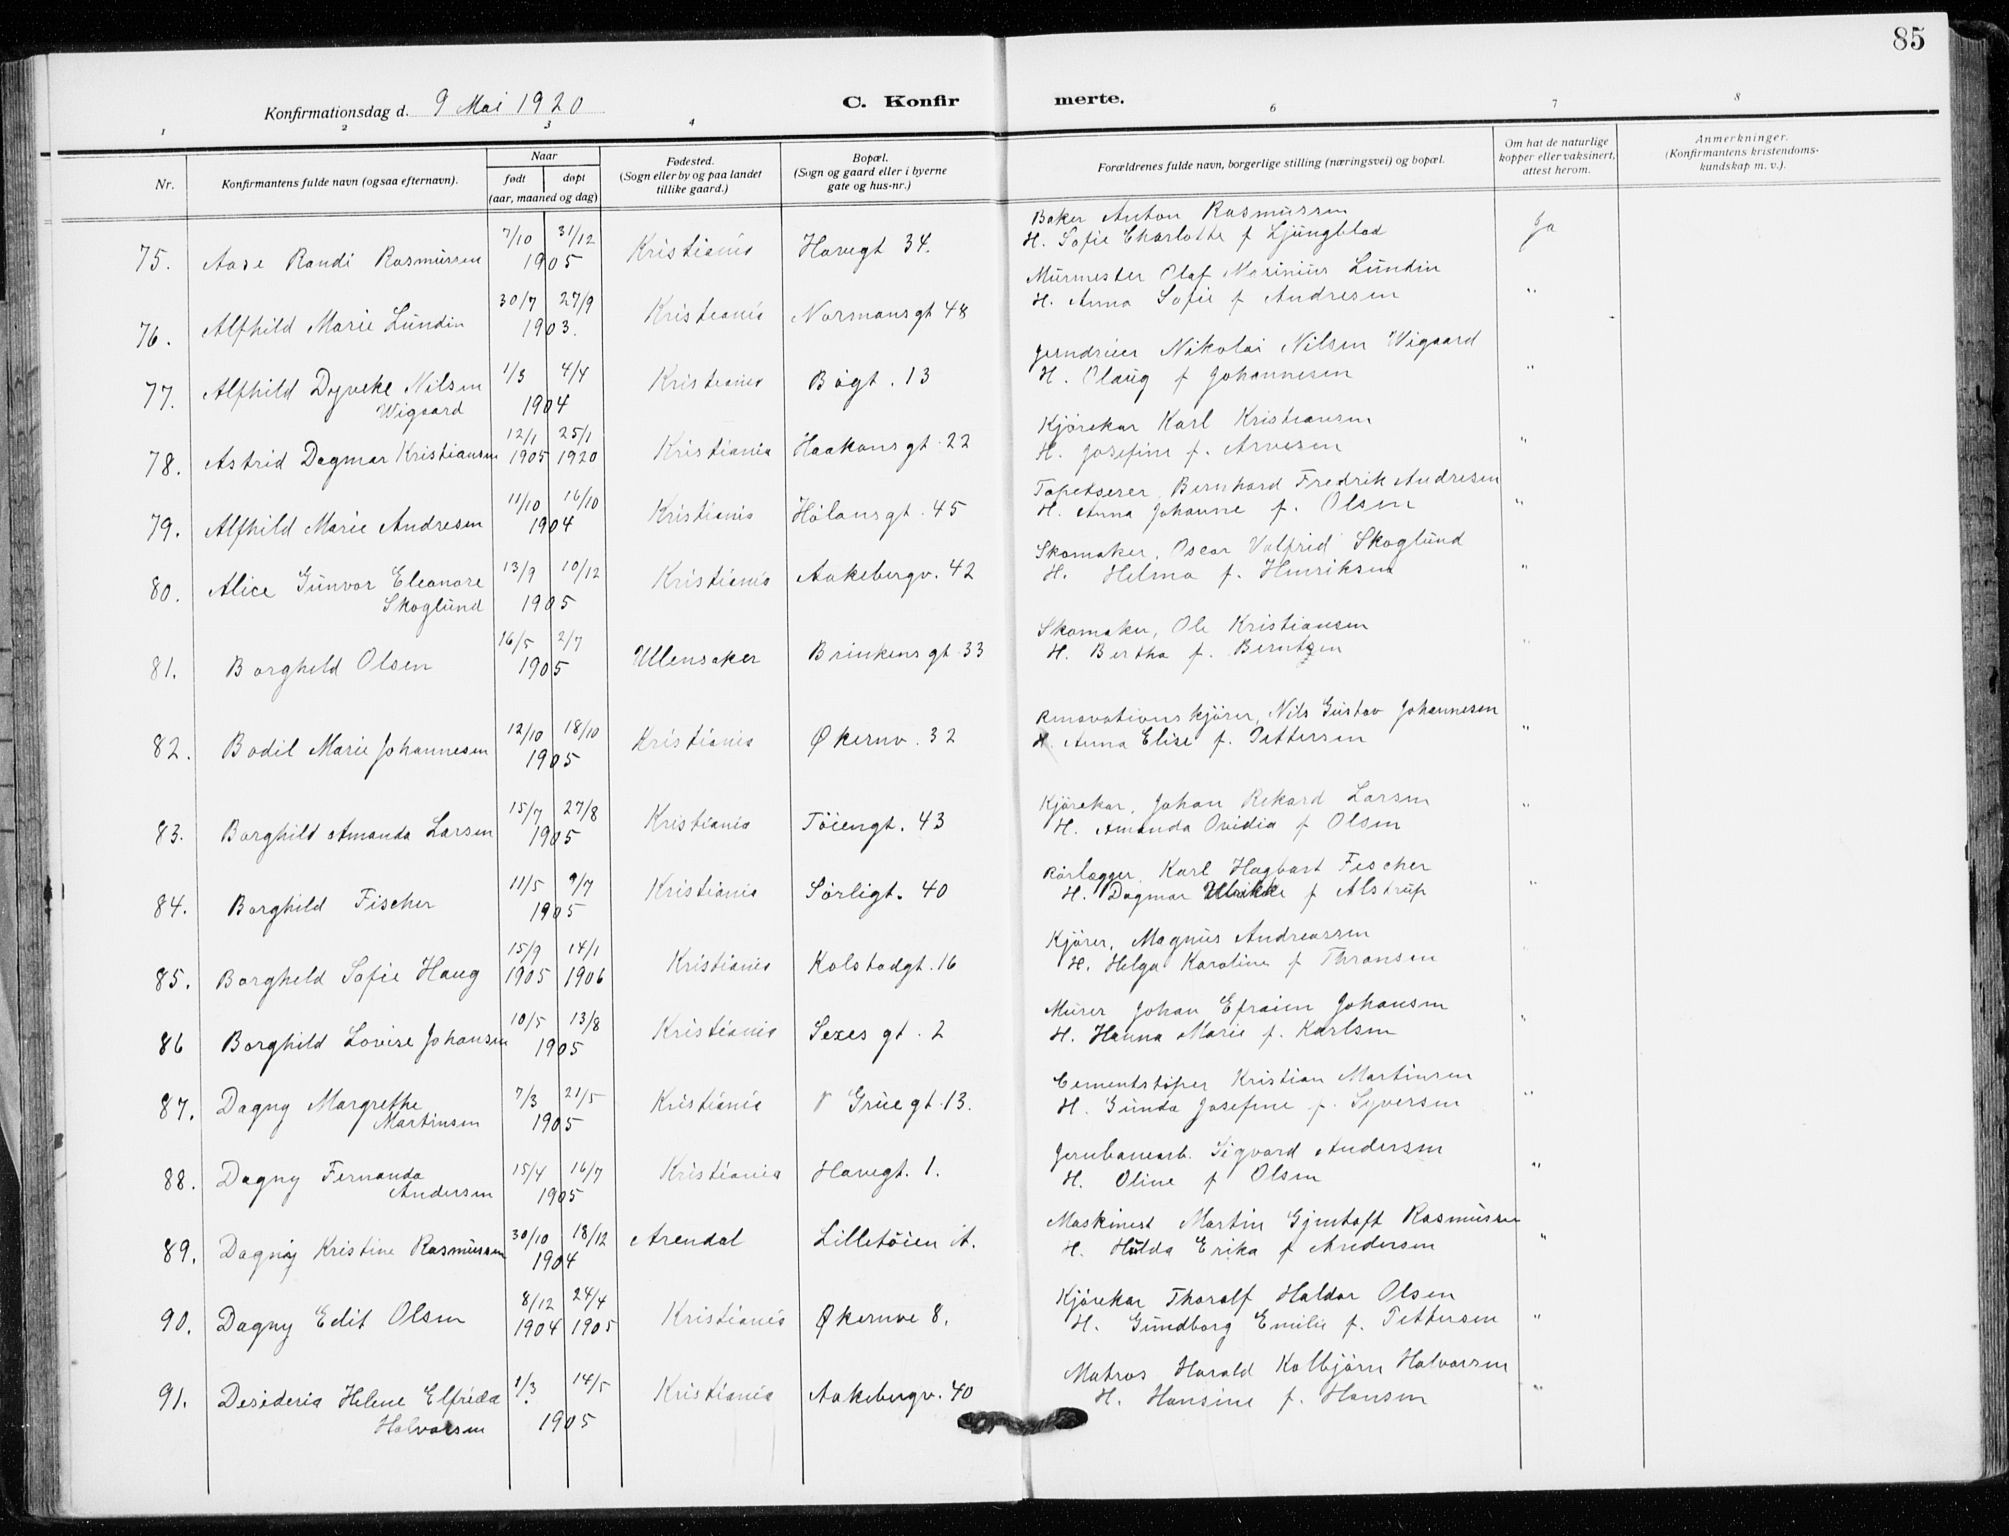 85
Konfirmationsdag d. 9 Mai 1920
C. Konfirmerte.
1 2 3 4 6 7 8
Nr.
Konfirmantens fulde navn (ogsaa efternavn).
Naar
født døpt
(aar, maaned og dag)
Fødested.
(Sogn eller by og paa landet
tillike gaard.)
Bopæl.
(Sogn og gaard eller i byerne
gate og hus-nr.)
Forældrenes fulde navn, borgerlige stilling (næringsvei) og bopæl.
Om hat de naturlige
kopper eller vaksinert,
attest herom.
Anmerkninger.
(Konfirmantens kristendoms-
kundskap m. v.).
7/10 31/12 Baker Anton Rasmussen
75. Aase Randi Rasmussen 1905 Kristiania Havegt 34. H. Sofie Charlotte f Ljungblad Ja
30/7 27/9 Murmester Olaf Marinius Lundin
76. Alfhild Marie Lundin 1903. Kristiania Normansgt 48 H. Anna Sofie f Andresen "
1/3 4/4 Jerndreier Nikolai Nilsen Wigaard
77. Alfhild Dyveke Nilsen Kristiania Bøgt. 13 H. Olaug f Johannesen "
Wigaard 1904
12/1 25/1 Kjørekar Karl Kristiansen
78. Astrid Dagmar Kristiansen 1905 1920 Kristiania Haakonsgt. 22 H. Josefine f. Arvesen "
11/10 16/10 Tapetserer, Bernhard Fredrik Andresen
79. Alfhild Marie Andresen 1904 Kristiania Hølansgt. 45 H. Anna Johanne f. Olsen "
13/9 10/12 Skomaker, Oscar Valfrid Skoglund
80. Alice Gunvor Eleonore Kristiania Aakebergv. 42 H. Helma f. Henriksen "
Skoglund 1905
16/5 2/7 Skomaker, Ole Kristiansen
81. Borghild Olsen 1905 Ullensaker Brinkensgt. 33 H. Bertha f. Berntzen "
12/10 18/10 Renovationskjører, Nils Gustav Johannesen
82. Bodil Marie Johannesen 1905 Kristiania Økernv. 32 H. Anna Elise f. Pettersen "
15/7 27/8 Kjørekar, Johan Rikard Larsen
83. Borghild Amanda Larsen 1905 Kristiania Tøiengt. 43 H. Amanda Ovidia f Olsen "
11/5 9/7 Rørlægger, Karl Hagbart Fischer
84. Borghild Fischer 1905 Kristiania Sørligt. 40 H. Dagmar Ulrikke f Alstrup "
15/9 14/1 Kjører, Magnus Andreassen
85. Borghild Sofie Haug 1905 1906 Kristiania Kolstadgt. 16 H. Helga Karoline f Thronsen "
10/5 13/8 Murer Johan Efraim Johansen
86 Borghild Lovise Johansen 1905 Kristiania Sexes gt. 2 H. Hanna Marie f. Karlsen "
7/3 21/5 Cementstøper Kristian Martinsen
87. Dagny Margrethe Kristiania Gruegt. 13. H. Gunda Josefine f. Syversen "
Martinsen 1905
15/4 16/7 Jernbanearb. Sigvard Andersen
88. Dagny Fernanda Kristiania Havegt. 1. H. Oline f Olsen "
Andersen 1905
30/10 18/12 Maskinist Martin Gjentoft Rasmussen
89. Dagny Kristine Rasmussen 1904 Arendal Lilletøien it. H. Hulda Erika f Andersen "
8/12 24/4 Kjørekar Thoralf Haldor Olsen
90. Dagny Edit Olsen 1904 1905 Kristiania Økernve 8. H. Gundborg Emilie f. Pettersen "
1/3. 14/5 Matros Harald Kolbjørn Halvorsen
91. Desideria Helene Elfrida Kristiania Aakebergv. 40 H. Hansine f. Hansen "
Halvorsen 1905